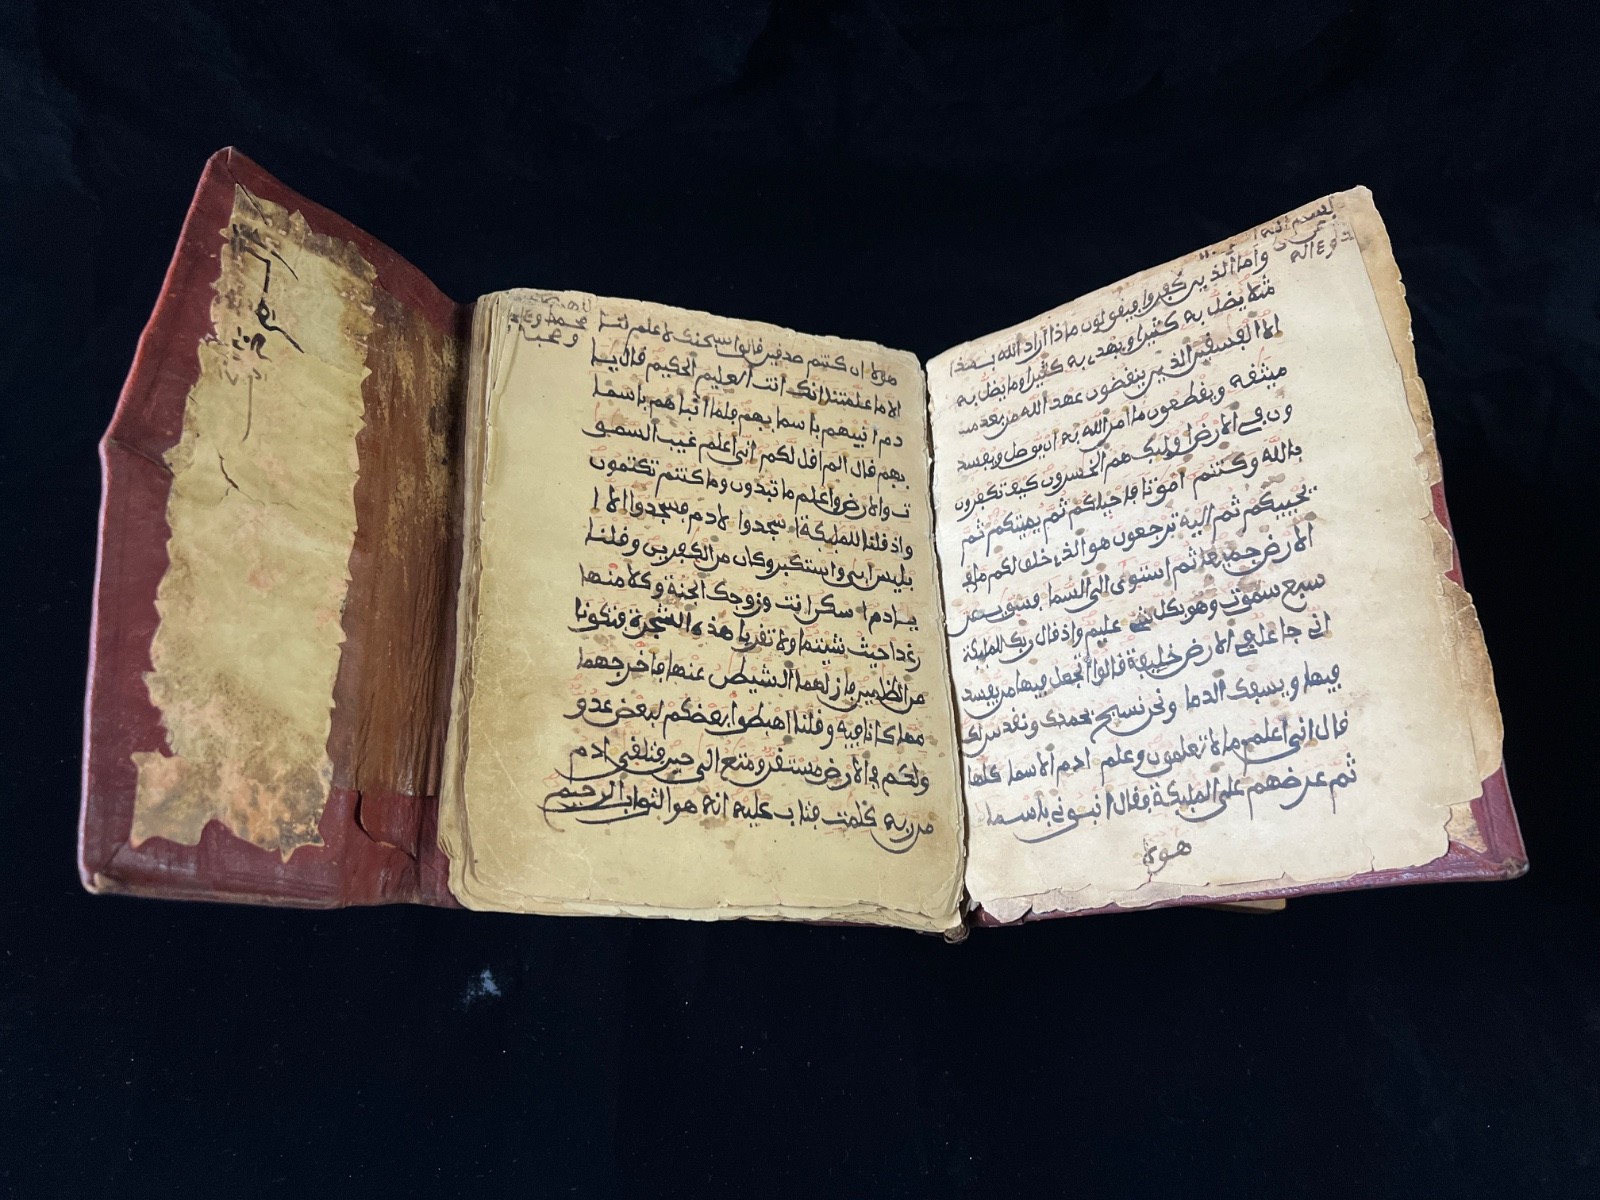 بسم الله
وأما ألذين كفروا فيقولون ماذا أراد الله بهذا
مثلا يضل به كثيرا ويهدي به كثيرا وما يضل به
الا الفسقين الذين ينقضون عهد الله من بعد
ميثقه ويقطعون ما امر الله به ان يوصل ويفسد
ون في الارض اوليك هم الخسرون كيف تكفرون
بالله وكنتم اموتا فاحياكم ثم يميتكم ثم
يحييكم ثم اليه ترجعون هو الذي خلق لكم ما في
الارض جميعا ثم استوى الى السما فسويهن
سبع سموت وهو بكل شي عليم واذ قال ربك للمليكة
اني جاعل في الارض خليفة قالوا أتجعل فيها من يفسد
فيها ويسفك الدما ونحن نسبح بحمدك ونقدس لك
قال اني اعلم ما لا تعلمون وعلم ادم الاسما كلها
ثم عرضهم على المليكة فقال انبوني باسما
هولا
هولا ان كنتم صدقين قالوا سبحنك لا علم لنا
الا ما علمتنا انك انت العليم الحكيم قال يـا
دم انبيهم باسمايهم فلما انباهم باسما
يهم قال الم اقل لكم اني اعلم غيب السمو
ت والارض واعلم ما تبدون وما كنتم تكتمون
واذ قلنا للمليكة اسجدوا لادم فسجدوا الا ا
بليس ابى واستكبر وكان من الكفرين وقلنا
يـادم اسكن انت وزوجك الجنة وكلا منها
رغدا حيث شيتما ولا تقربا هذه الشجرة فتكونا
من الظلمين فازلهما الشيطن عنها فاخرجهما
مما كانا فيه وقلنا اهبطوا بعضكم لبعض عدو
ولكم في الارض مستقر ومتع الى حين فتلقى ادم
من ربه كلمت فتاب عليه انه هو التواب الرحيم